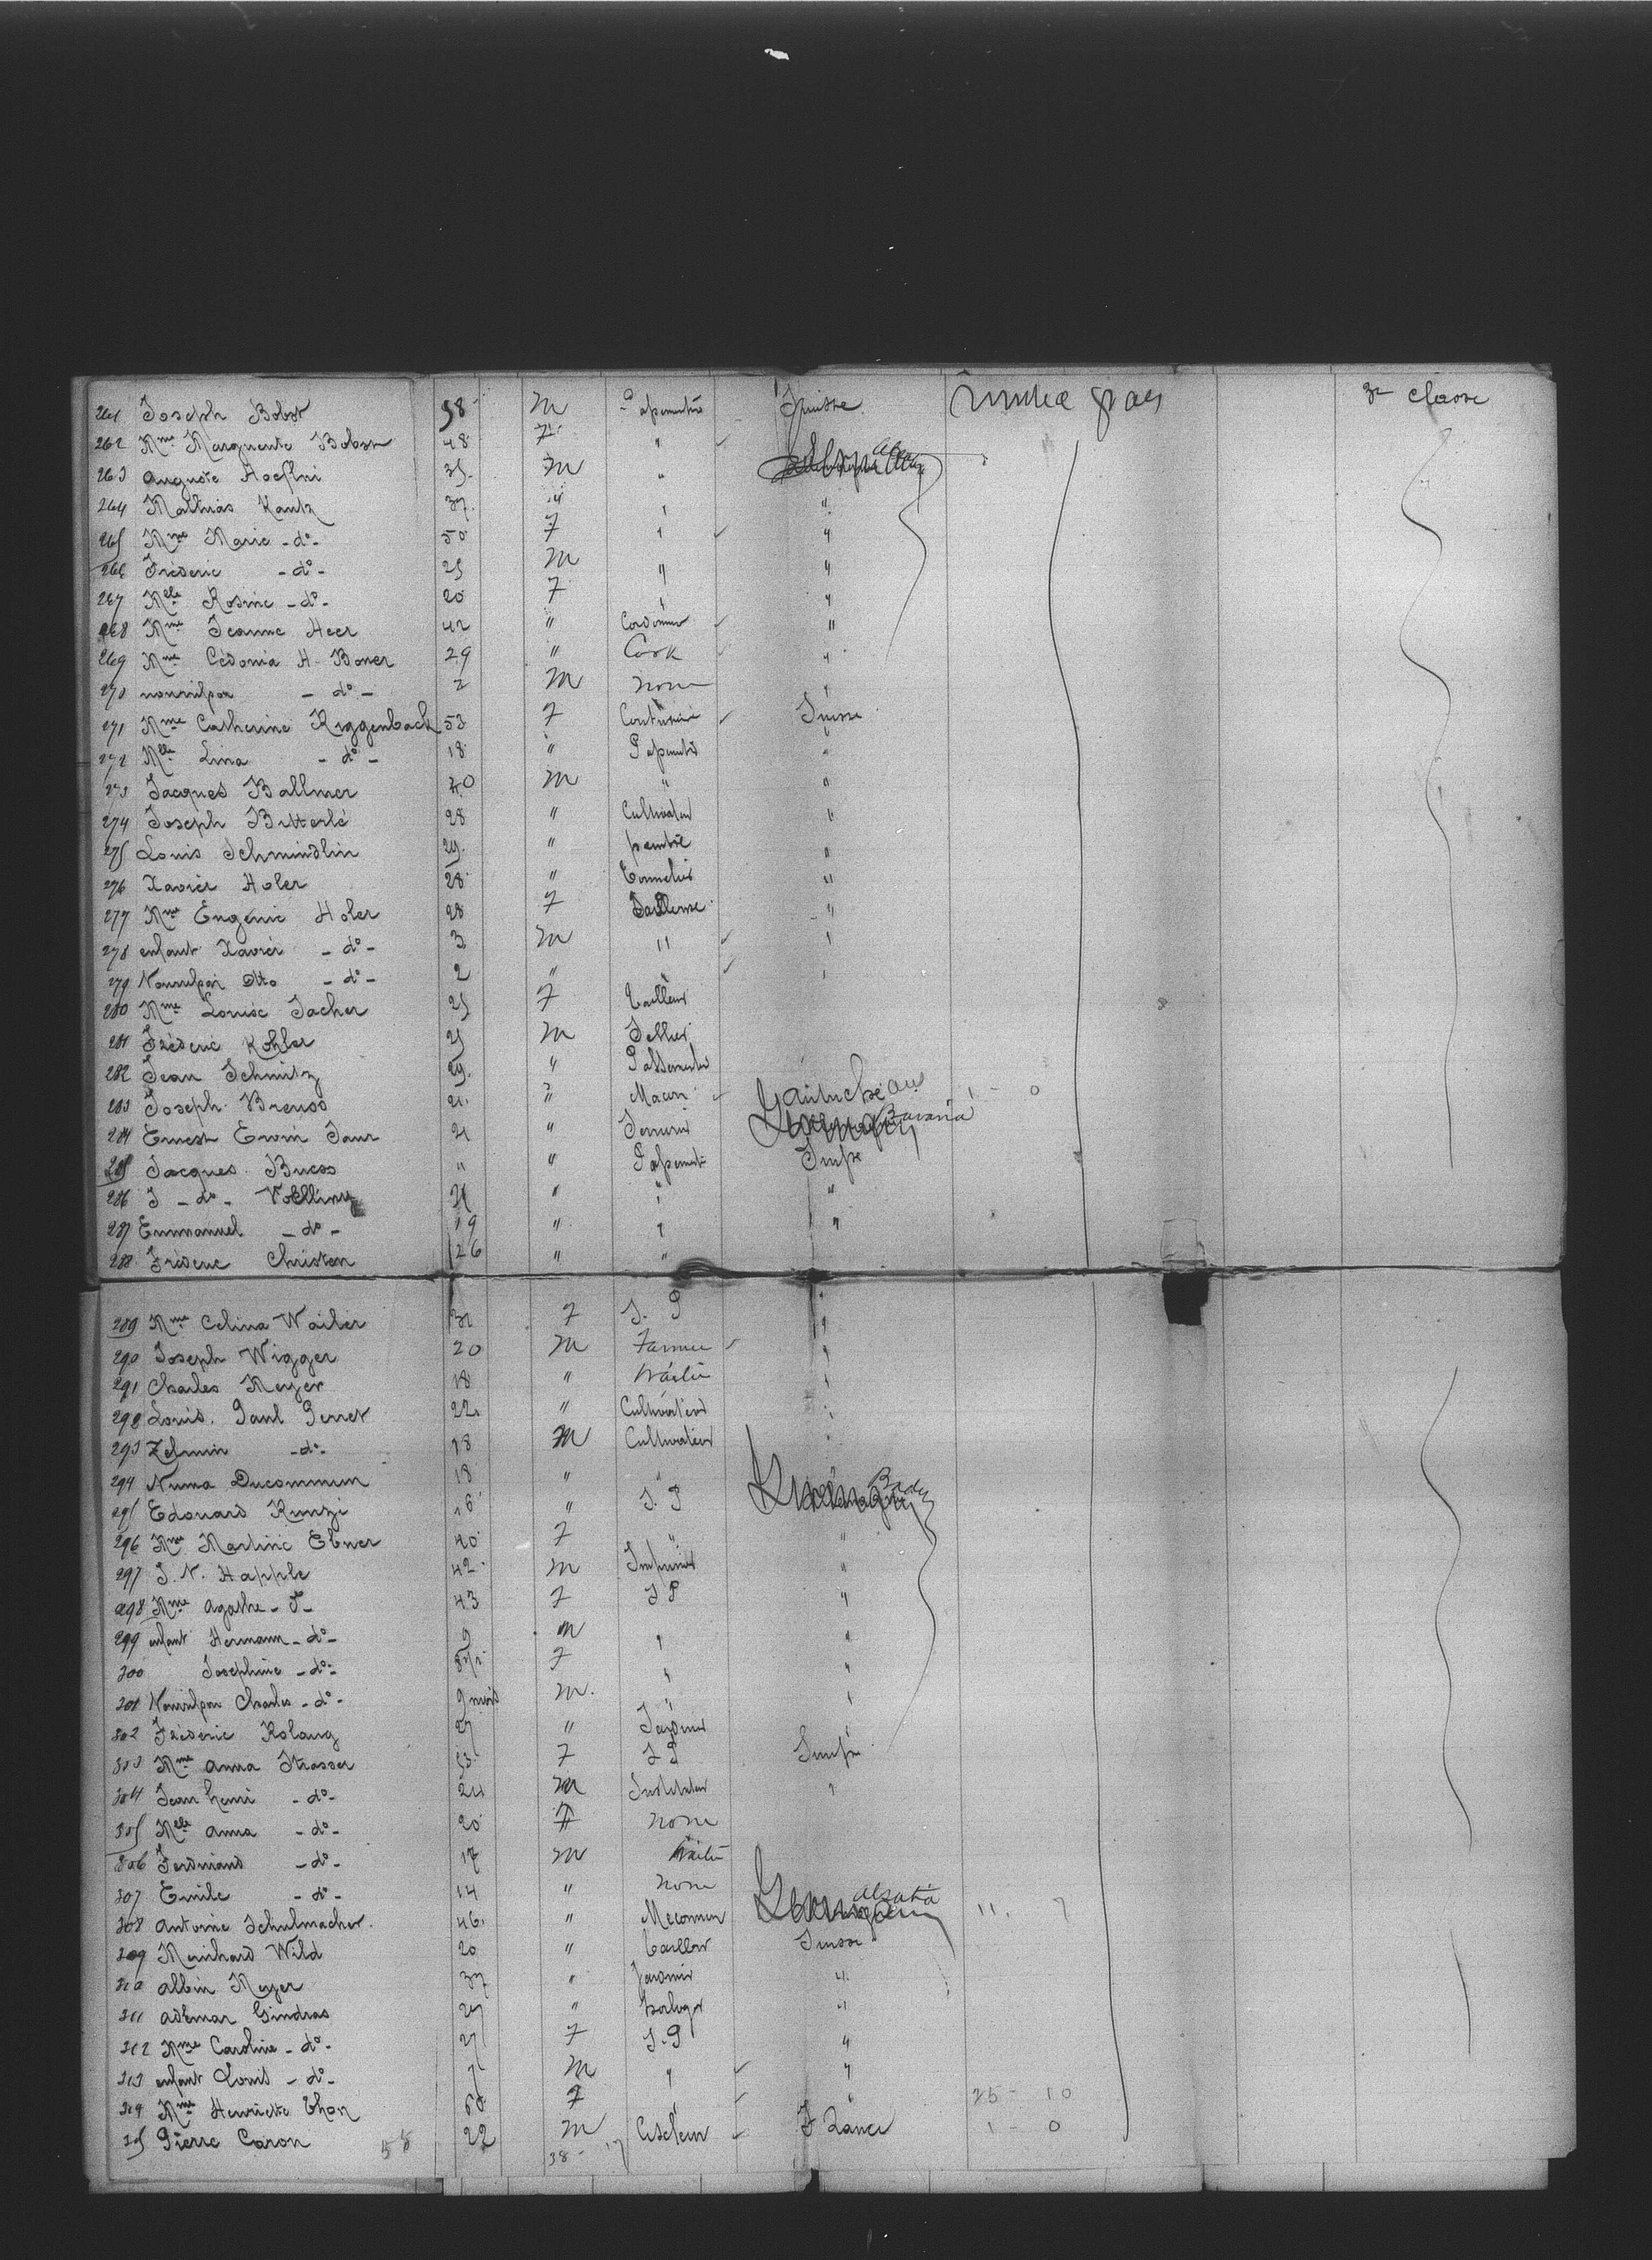 261 Joseph Bobst 58 M Passementié Suisse United States 3e Classe
262 Mme Marguerite Bobst 48 F "
263 Auguste Hoeflni 35 M " Alsace
264 Mathias Kautz 37 " " "
265 Mme Marie -do- 50 F " "
266 Fréderic -do- 25 M " "
267 Melle Rosine -do- 20 F " "
268 Mme Jeanne Heer 42 " Cordonnier "
269 Mme Cédonia H. Boner 29 " Cook "
270 nourrisson -do- 2 M None "
271 Mme Catherine Riggenbach 53 F Couturière Suisse
272 Mlle Lina -do- 18 " Passementié "
273 Jacques Ballmer 40 M " "
274 Joseph Bitterlé 28 " Cultivateur "
275 Louis Schmindlin 29 " peintre "
276 Xavier Holer 28 " Tonnelier "
277 Mme Eugénie Holer 28 F Tailleuse "
278 enfant Xavier -do- 3 M " "
279 Nourrisson Otto -do- 2 " " "
280 Mme Louise Sacher 25 F Tailleur
281 Fréderic Kohler 25 M Sellier
282 Jean Schmitz 29 " Passementier
283 Joseph Breuss 21 " Macon Autrichien 1 - 0
284 Ernest Erwin Saur 21 " Serrurier Germany Bavaria
285 Jacques Buess " " Passementié Suisse
286 J -do- Voëlliny 21 " " "
287 Emmanuel -do- 19 " " "
288 Fréderic Christen 26 " "
289 Mme Celina Wailer 31 F S. P "
290 Joseph Wigger 20 M Farmer "
291 Charles Meyer 18 " Waiter "
292 Louis Paul Perret 22 " Cultivateur "
293 Zelmin -do- 18 M Cultivateur "
294 Numa Ducommun 18 " " "
295 Edouard Kunzi 16 " S. P Germany Baden
296 Mme Martine Ebner 40 F " "
297 J. N. Happle 42 M Imprimeur "
298 Mme Agathe -do- 43 F S P "
299 enfant Hermann -do- 9 M " "
300 Josephine -do- F " "
301 Nourrisson Charles -do- 9 mois M. " "
302 Fréderic Kolang 27 " Jardinier
303 Mme Anna Strasser F S P Suisse
304 Jean Henri -do- 24 M Instituteur "
305 Melle Anna -do- 20 F None
306 Ferdinand -do- 17 M Waiter
307 Emile -do- 14 " None
308 Antoine Schulmacher 46 " Mecanicien Germany Alsatia 11. 7
309 Meinhard Wild 20 " Tailleur Suisse
310 Albin Meyer 37 " Jardinier "
311 Adémar Gindras 27 " horloger "
312 Mme Caroline -do- 27 F S. P "
313 enfant Louis -do- M " "
314 Mme Henriette Thon F " " 25 - 10
315 Pierre Caron 22 M Ciseleur France 1 - 0
58 38 - 17